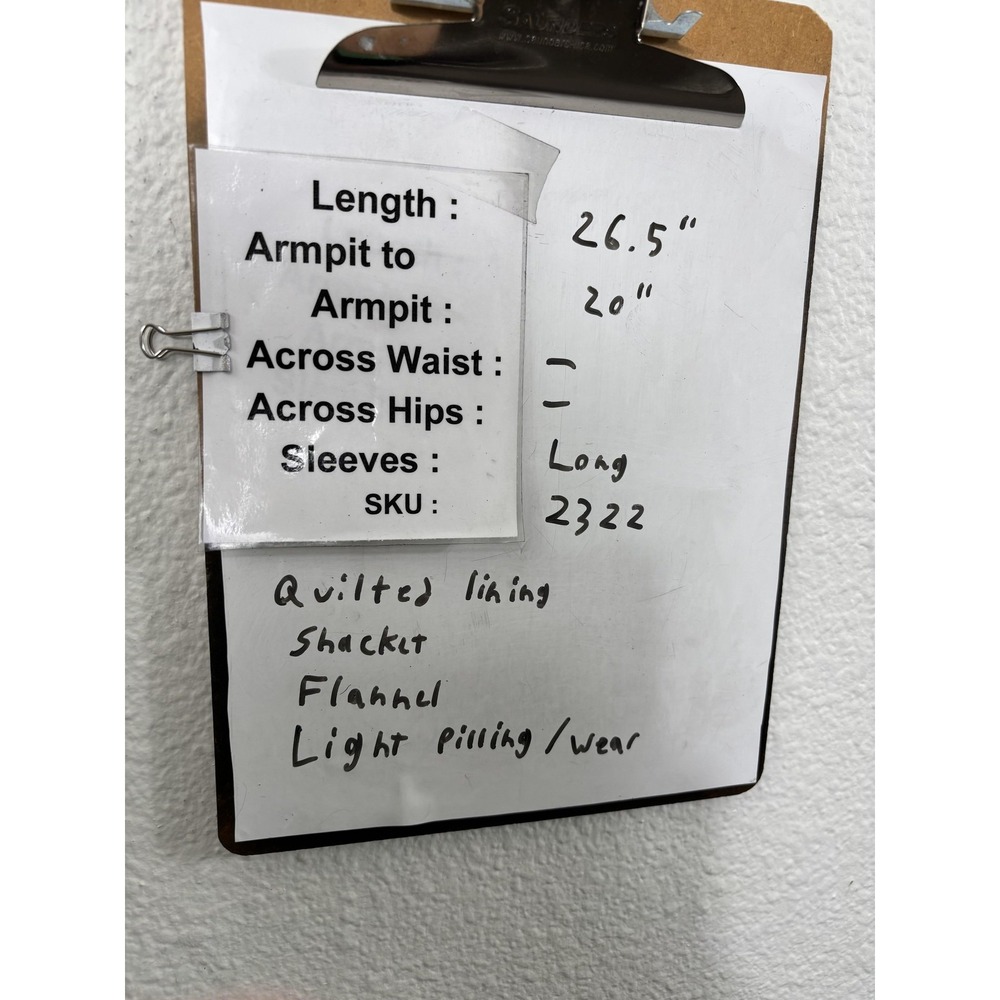 Length : 26.5"
Armpit to
Armpit : 20"
Across Waist : —
Across Hips : —
Sleeves : Long
SKU : 2322
Quilted lining
Shacket
Flannel
Light Pilling/wear